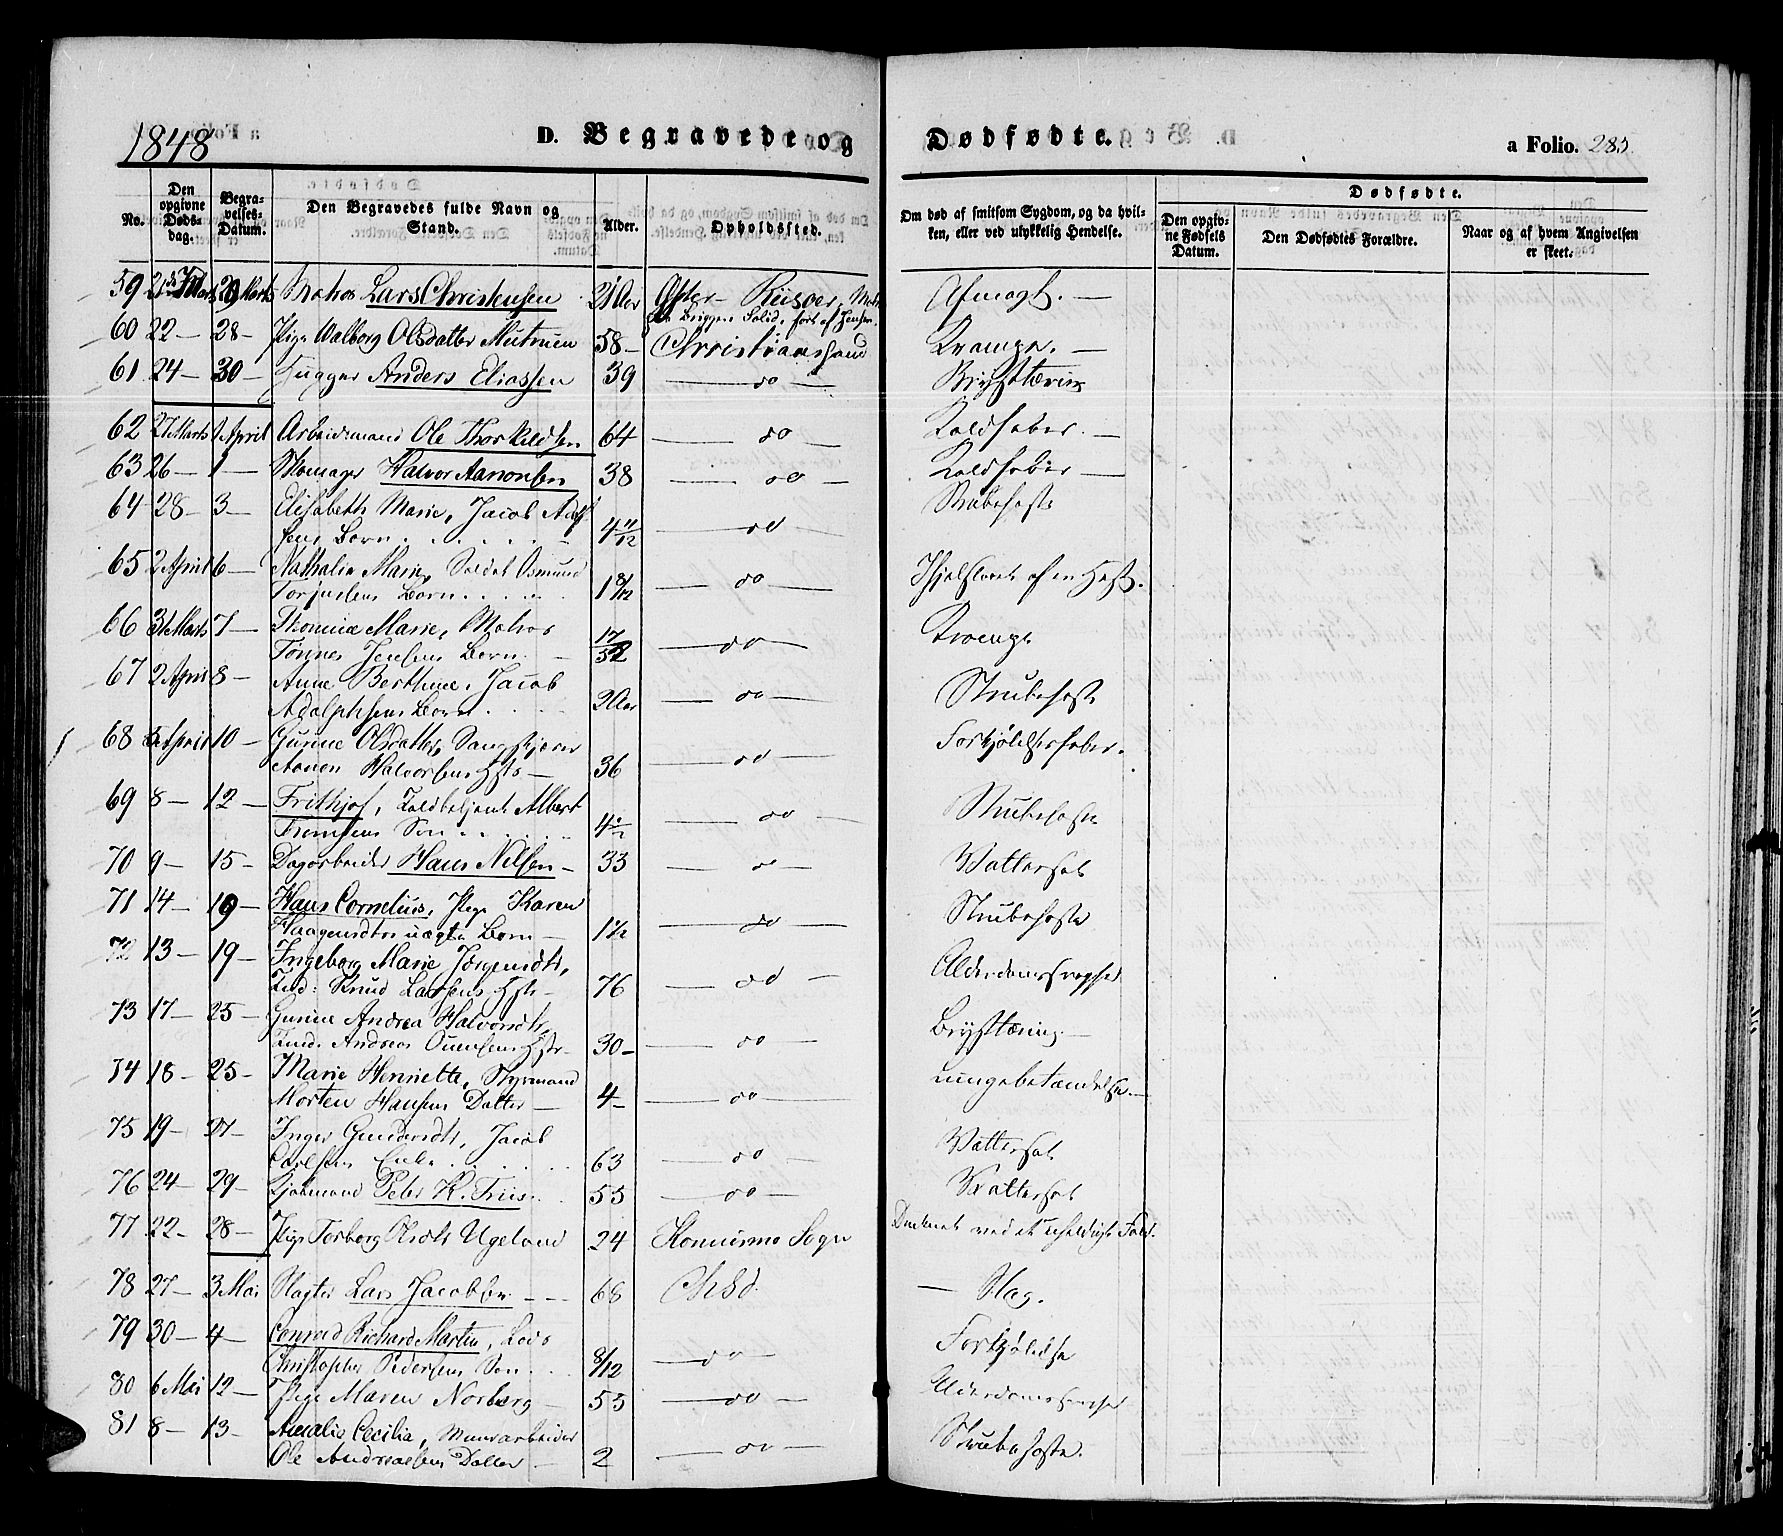 1848 D. Begravede og Dødfødte. a Folio. 285.
No. Den opgivne Døds-dag. Begra-velses-Datum. Den Begravedes fulde Navn og Stand. Alder. Opholdssted. Om død af smitsom Sygdom, og da hvil-ken, eller ved ulykkelig Hendelse. Dødfødte.
Den opgiv-ne Fødsels Datum. Den Dødfødtes Forældre. Naar og af hvem Angivelsen er skeet.
59 21 Marts 29 Marts Matros Lars Christensen 21 Aar Øster-Riisøer, Matr. Afmagt. —
Briggen Solid, ført af Jensen.
60 22 — 28 — Pige Walborg Olsdatter Mutruen 58 — Christiansand Krampe. —
61 24 — 30 — Anders Eliassen 39 — do — Brysttæring
62 27 Marts 1 April Arbeidsmand Ole Thorkildsen 64 — do — Koldfeber. —
63 26 — 1 — Skomager Halvor Aanonsen 38 — do — Koldfeber —
64 28 — 3 — Elisabeth Marie, Jacob
sens Barn. 4 11/12 — do — Strubehoste
65 2 April 6 — Nathalia Marie, Soldat Osmund
Torjusens Barn 1 8/12 — do — Ihjelslaaet af en Hest.
66 31 Marts 7 — Thomine Marie, Matros
Tønnes Jensens Barn. 17/52 — do — Krampe
67 2 April 8 — Anne Berthine, Jacob
Adolphsens Barn 2 Aar — do — Strubehoste
68 5 April 10 — Gurine Olsdatter,
Aanen Halvorsens Hst. — 36 — do — Forkjølelsesfeber.
69 8 — 12 — Frithjof, Toldbetjent Albert
Søn 4 — do — Strubehoste
70 9 — 15 — Dagarbeider Hans Nilsen — 33 — do — Vattersot
71 14 — 19 — Hans Cornelius, Pige Karen
Haagensdtrs uægte Barn — 1 1/2 — do — Strubehoste
72 13 — 19 — Ingeborg Marie Jørgensdtr,
Ind: Knud Larsens Hst. — 76 — do — Alderdomssvaghed
73 17 — 25 — Gurine Andrea Halvorsdtr,
Ind: Andreas Ouensens Hstr — 30 — — do — Brysttæring —
74 18 — 25 — Marie Henriette, Styrmand
Morten Hansens Datter — 4 — — do — Lungebetændelse. —
75 19 — 27 — Inger Gundersdtr, Jacob
Carlsens Enke 63 — do — Vattersot
76 24 — 29 — Sjømand Peter K. Friis. 55 — do — Vattersot
77 22 — 28 — Pige Torborg Ugeland 24 Sogn Druknet ved et uheldigt Fald.
78 27 — 3 Mai Slagter Lars Jacobsen — — 68 Chsd. — Slag.
79 30 — 4 — Conrad Richard Martin, Lods
Christopher Pedersens Søn 8/12 — do — Forkjølelse
80 6 Mai 12 — Pige Maren Norberg — 55 — do — Alderdomssvaghed
81 8 — 13 — Amalie Cecilia, Muurarbeider
Ole Andreassens Datter — 2 — do — Strubehoste.